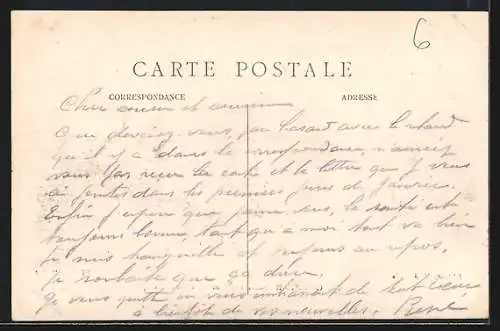 6
CARTE POSTALE
CORRESPONDANCE
ADRESSE
Cher cousin et cousine
devriez vous, par hasard avec le retard
qu'il y a dans la correspondance, n'auriez
vous pas reçu la carte et la lettre que je vous
ai dans les premiers jours de janvier.
Enfin j'espère que pour vous, la santé est
toujours bonne, tant qu'à moi tout va bien
je suis tranquille et au repos,
je souhaite que ça dure.
Je vous quitte en vous embrassant de tout cœur
à bientôt de vos nouvelles. René